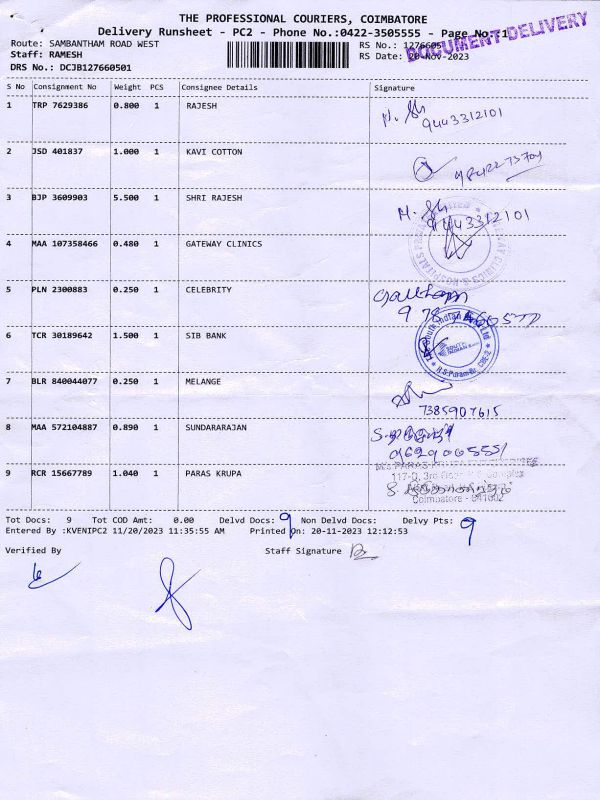 THE PROFESSIONAL COURIERS, COIMBATORE
Delivery Runsheet - PC2 - Phone No.:0422-3505555 - Page No.:1
DOCUMENT DELIVERY
Route: SAMBANTHAM ROAD WEST RS No.: 127660501
Staff: RAMESH RS Date: 20-Nov-2023
DRS No.: DCJB127660501
S No Consignment No Weight PCS Consignee Details Signature
1 TRP 7629386 0.800 1 RAJESH
9443312101
2 JSD 401837 1.000 1 KAVI COTTON
3 BJP 3609903 5.500 1 SHRI RAJESH
9443312101
4 MAA 107358466 0.480 1 GATEWAY CLINICS
5 PLN 2300883 0.250 1 CELEBRITY
Gautham
6 TCR 30189642 1.500 1 SIB BANK
South Indian Bank Ltd
7 BLR 840044077 0.250 1 MELANGE
7385907615
8 MAA 572104887 0.890 1 SUNDARARAJAN
9629006551
9 RCR 15667789 1.040 1 PARAS KRUPA
Coimbatore - 641002
Tot Docs: 9 Tot COD Amt: 0.00 Delvd Docs: 9 Non Delvd Docs: Delvy Pts: 9
Entered By :KVENIPC2 11/20/2023 11:35:55 AM Printed On: 20-11-2023 12:12:53
Verified By Staff Signature